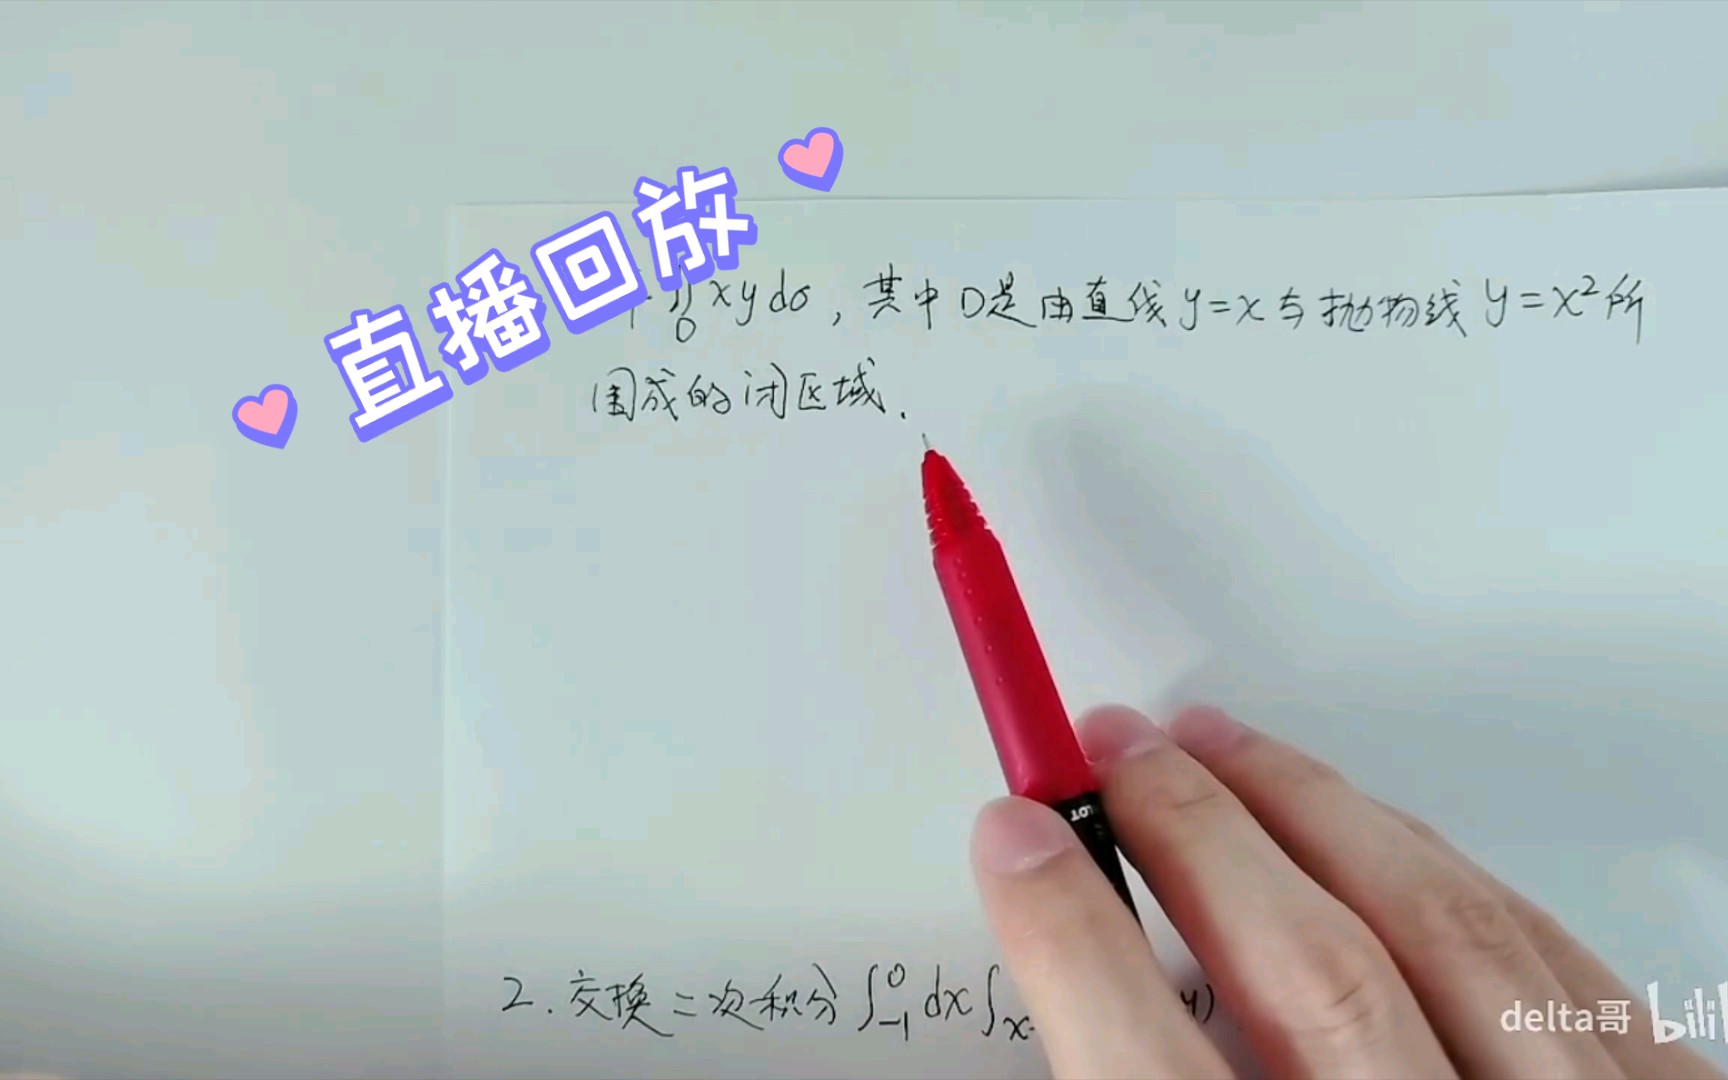 直播回放
∬_D xydσ，其中D是由直线y=x与抛物线y=x²所
围成的闭区域.
2.交换二次积分∫_{-1}^{0}dx∫_x
y)
LOT
delta哥 bili